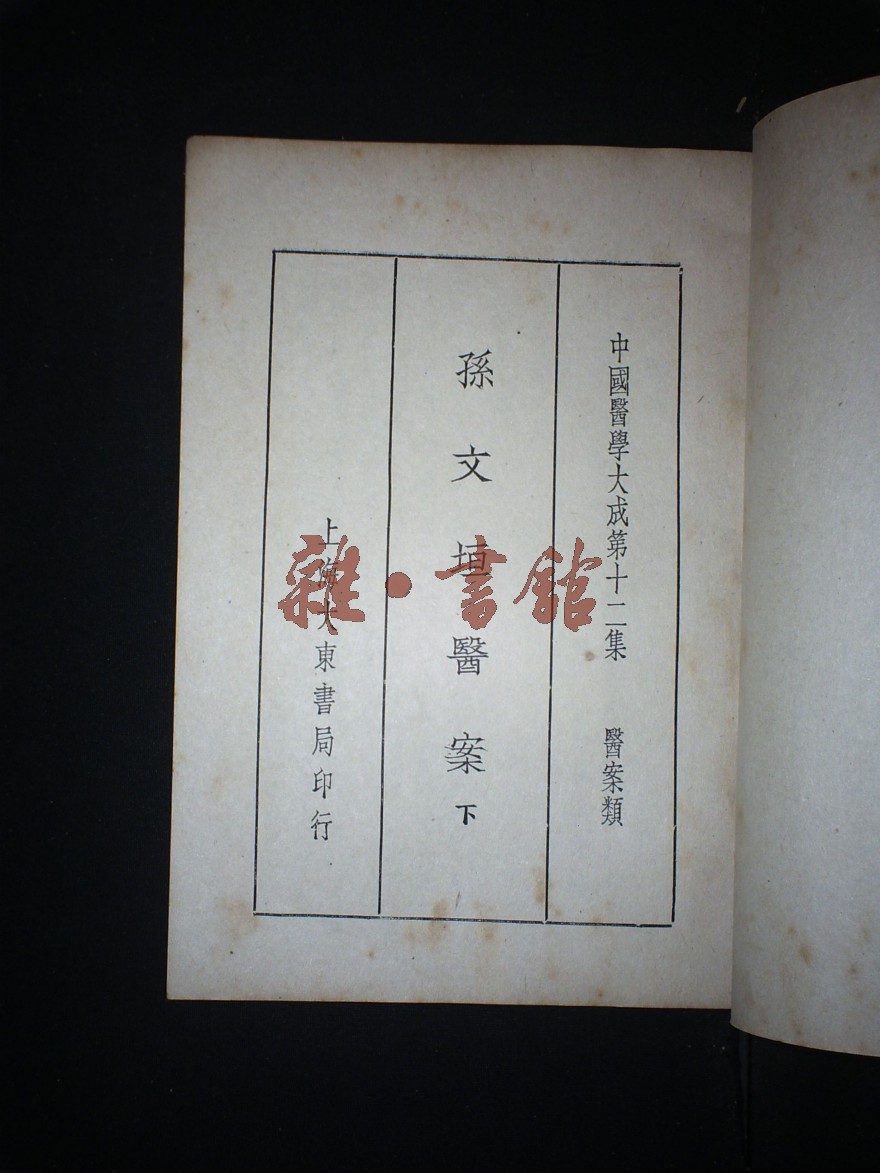 中國醫學大成第十二集 醫案類
孫文垣醫案 下
上海大東書局印行
雜·書館